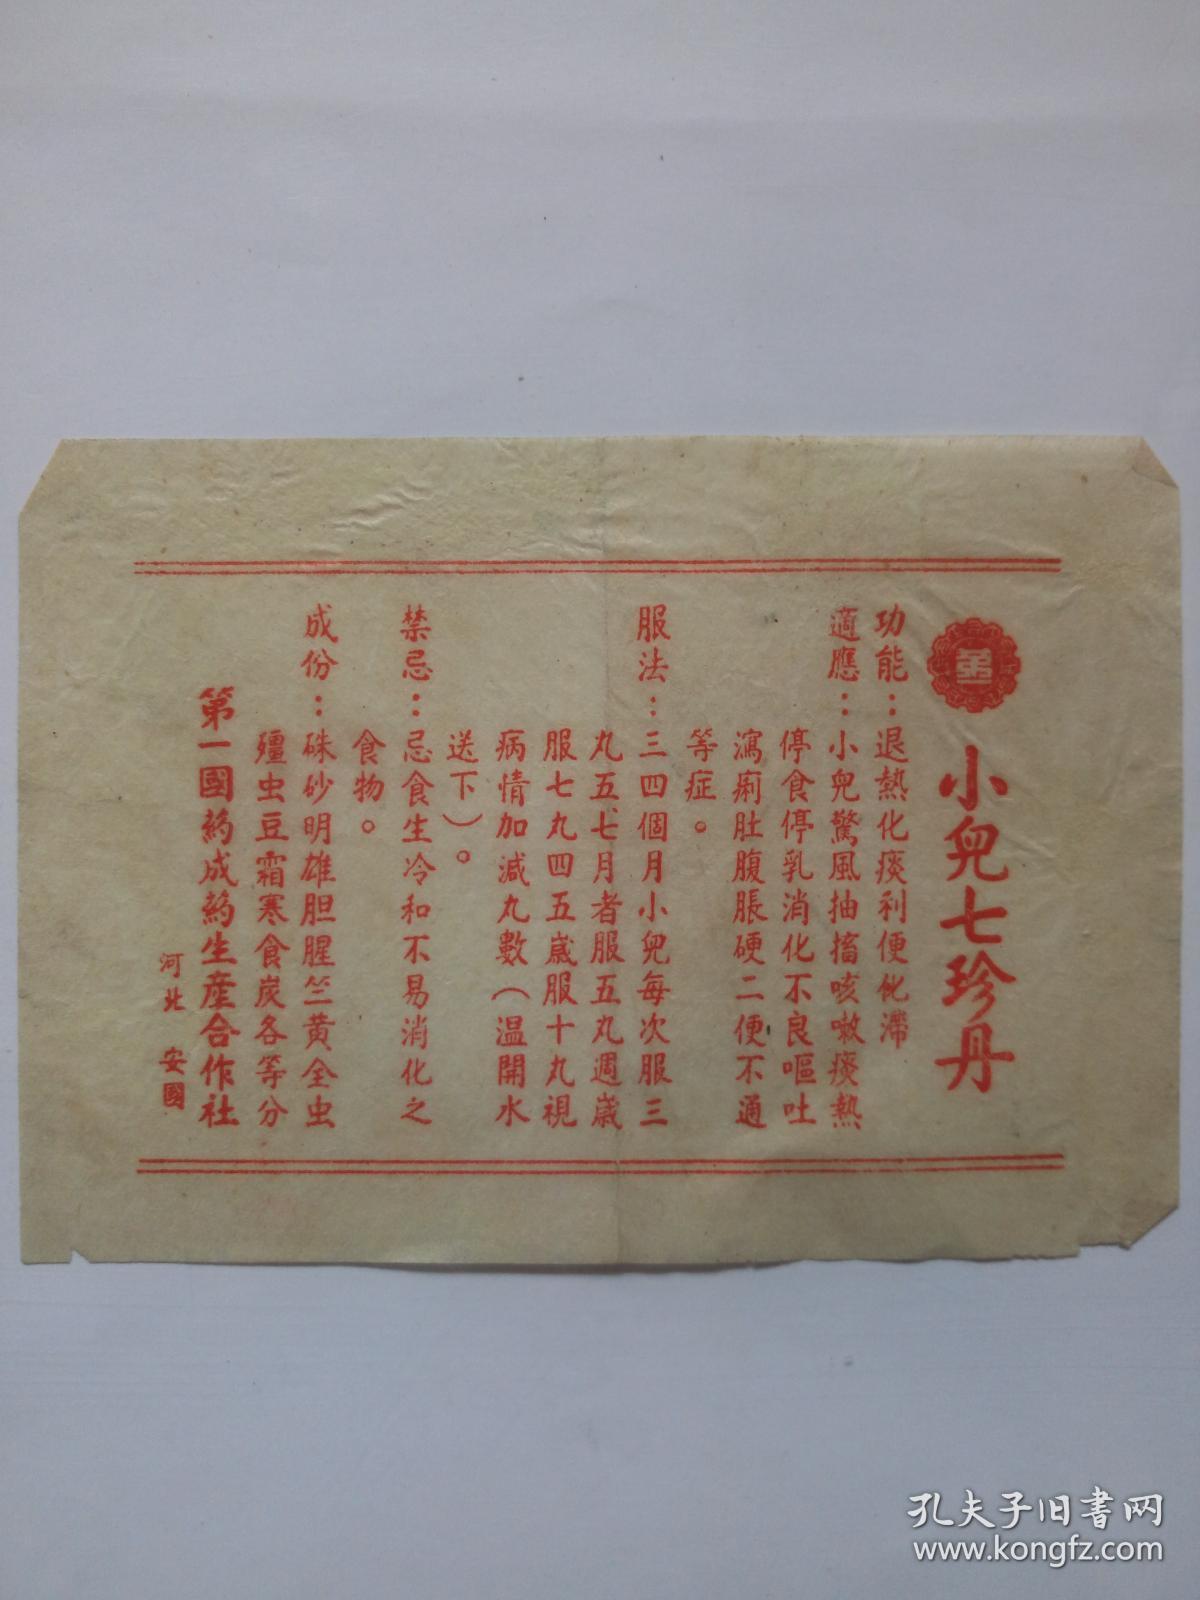 小兒七珍丹
功能：退熱化痰利便化滯
適應：小兒驚風抽搐咳嗽痰熱
停食停乳消化不良嘔吐
瀉痢肚腹脹硬二便不通
等症。
服法：三四個月小兒每次服三
丸五、七月者服五丸週嵗
服七丸四五嵗服十九視
病情加減丸數（温開水
送下）。
禁忌：忌食生冷和不易消化之
食物。
成份：硃砂明雄胆腥竺黄全虫
殭虫豆霜寒食炭各等分
第一國葯成葯生産合作社
河北 安國
孔夫子旧书网
www.kongfz.com